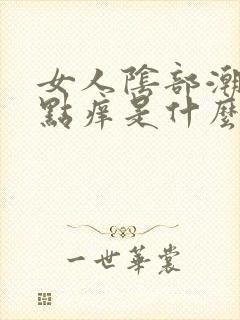 女人陰部潮
點痒是什麼
一世華裳